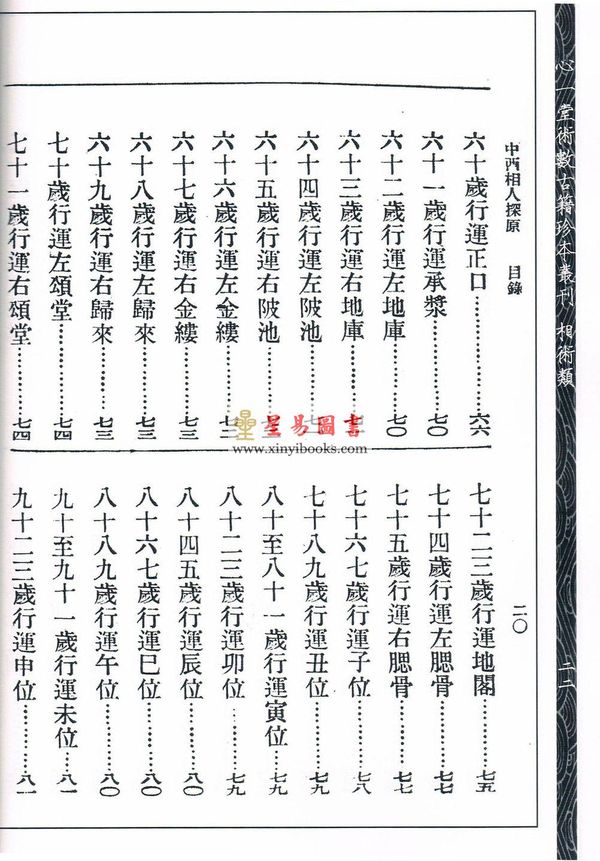 心一堂術數古籍珍本叢刊 相術類
二二
中西相人探原 目錄
二〇
六十歲行運正口…………六六
六十一歲行運承漿…………七〇
六十二歲行運左地庫…………七〇
六十三歲行運右地庫…………七一
六十四歲行運左陂池…………
六十五歲行運右陂池…………
六十六歲行運左金縷…………七二
六十七歲行運右金縷…………七三
六十八歲行運左歸來…………七三
六十九歲行運右歸來…………七三
七十歲行運左頌堂…………七四
七十一歲行運右頌堂…………七四
七十二三歲行運地閣…………七五
七十四歲行運左腮骨…………七七
七十五歲行運右腮骨…………七七
七十六七歲行運子位…………七八
七十八九歲行運丑位…………七九
八十至八十一歲行運寅位…………七九
八十二三歲行運卯位…………七九
八十四五歲行運辰位…………八〇
八十六七歲行運巳位…………八〇
八十八九歲行運午位…………八〇
九十至九十一歲行運未位…………八一
九十二三歲行運申位…………八一
星易圖書
www.xinyibooks.com